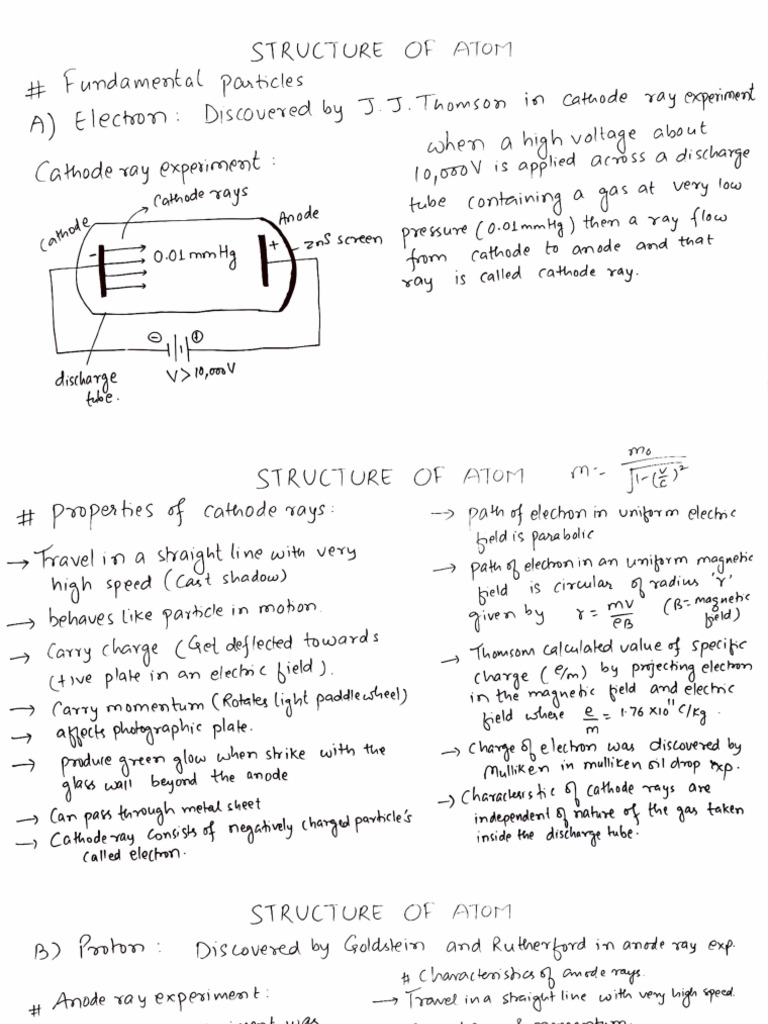 STRUCTURE OF ATOM
# Fundamental particles
A) Electron: Discovered by J.J. Thomson in cathode ray experiment
Cathode ray experiment:
Cathode rays
Cathode
Anode
ZnS screen
-
0.01mmHg
+
⊖ ⊕
V>10,000V
discharge
tube.
when a high voltage about
10,000V is applied across a discharge
tube containing a gas at very low
pressure (0.01mmHg) then a ray flow
from cathode to anode and that
ray is called cathode ray.
STRUCTURE OF ATOM
m = m0 / √1-(v/c)²
# Properties of cathode rays:
→ Travel in a straight line with very
high speed (Cast shadow)
→ behaves like particle in motion.
→ Carry charge (Get deflected towards
(+)ve plate in an electric field).
→ Carry momentum (Rotates light paddle wheel)
→ affects photographic plate.
→ produce green glow when strike with the
glass wall beyond the anode
→ Can pass through metal sheet
→ Cathode ray consists of negatively charged particle's
called electron.
→ path of electron in uniform electric
field is parabolic
→ path of electron in an uniform magnetic
field is circular of radius 'r'
given by r = mv/eB (B = magnetic
field)
→ Thomsom calculated value of specific
charge (e/m) by projecting electron
in the magnetic field and electric
field where e/m = 1.76 ×10¹¹ C/kg.
→ Charge of electron was discovered by
Mulliken in mulliken oil drop exp.
→ Characteristic of cathode rays are
independent of nature of the gas taken
inside the discharge tube.
STRUCTURE OF ATOM
B) Proton: Discovered by Goldstein and Rutherford in anode ray exp.
# Anode ray experiment:
# Characteristics of anode rays.
→ Travel in a straight line with very high speed.